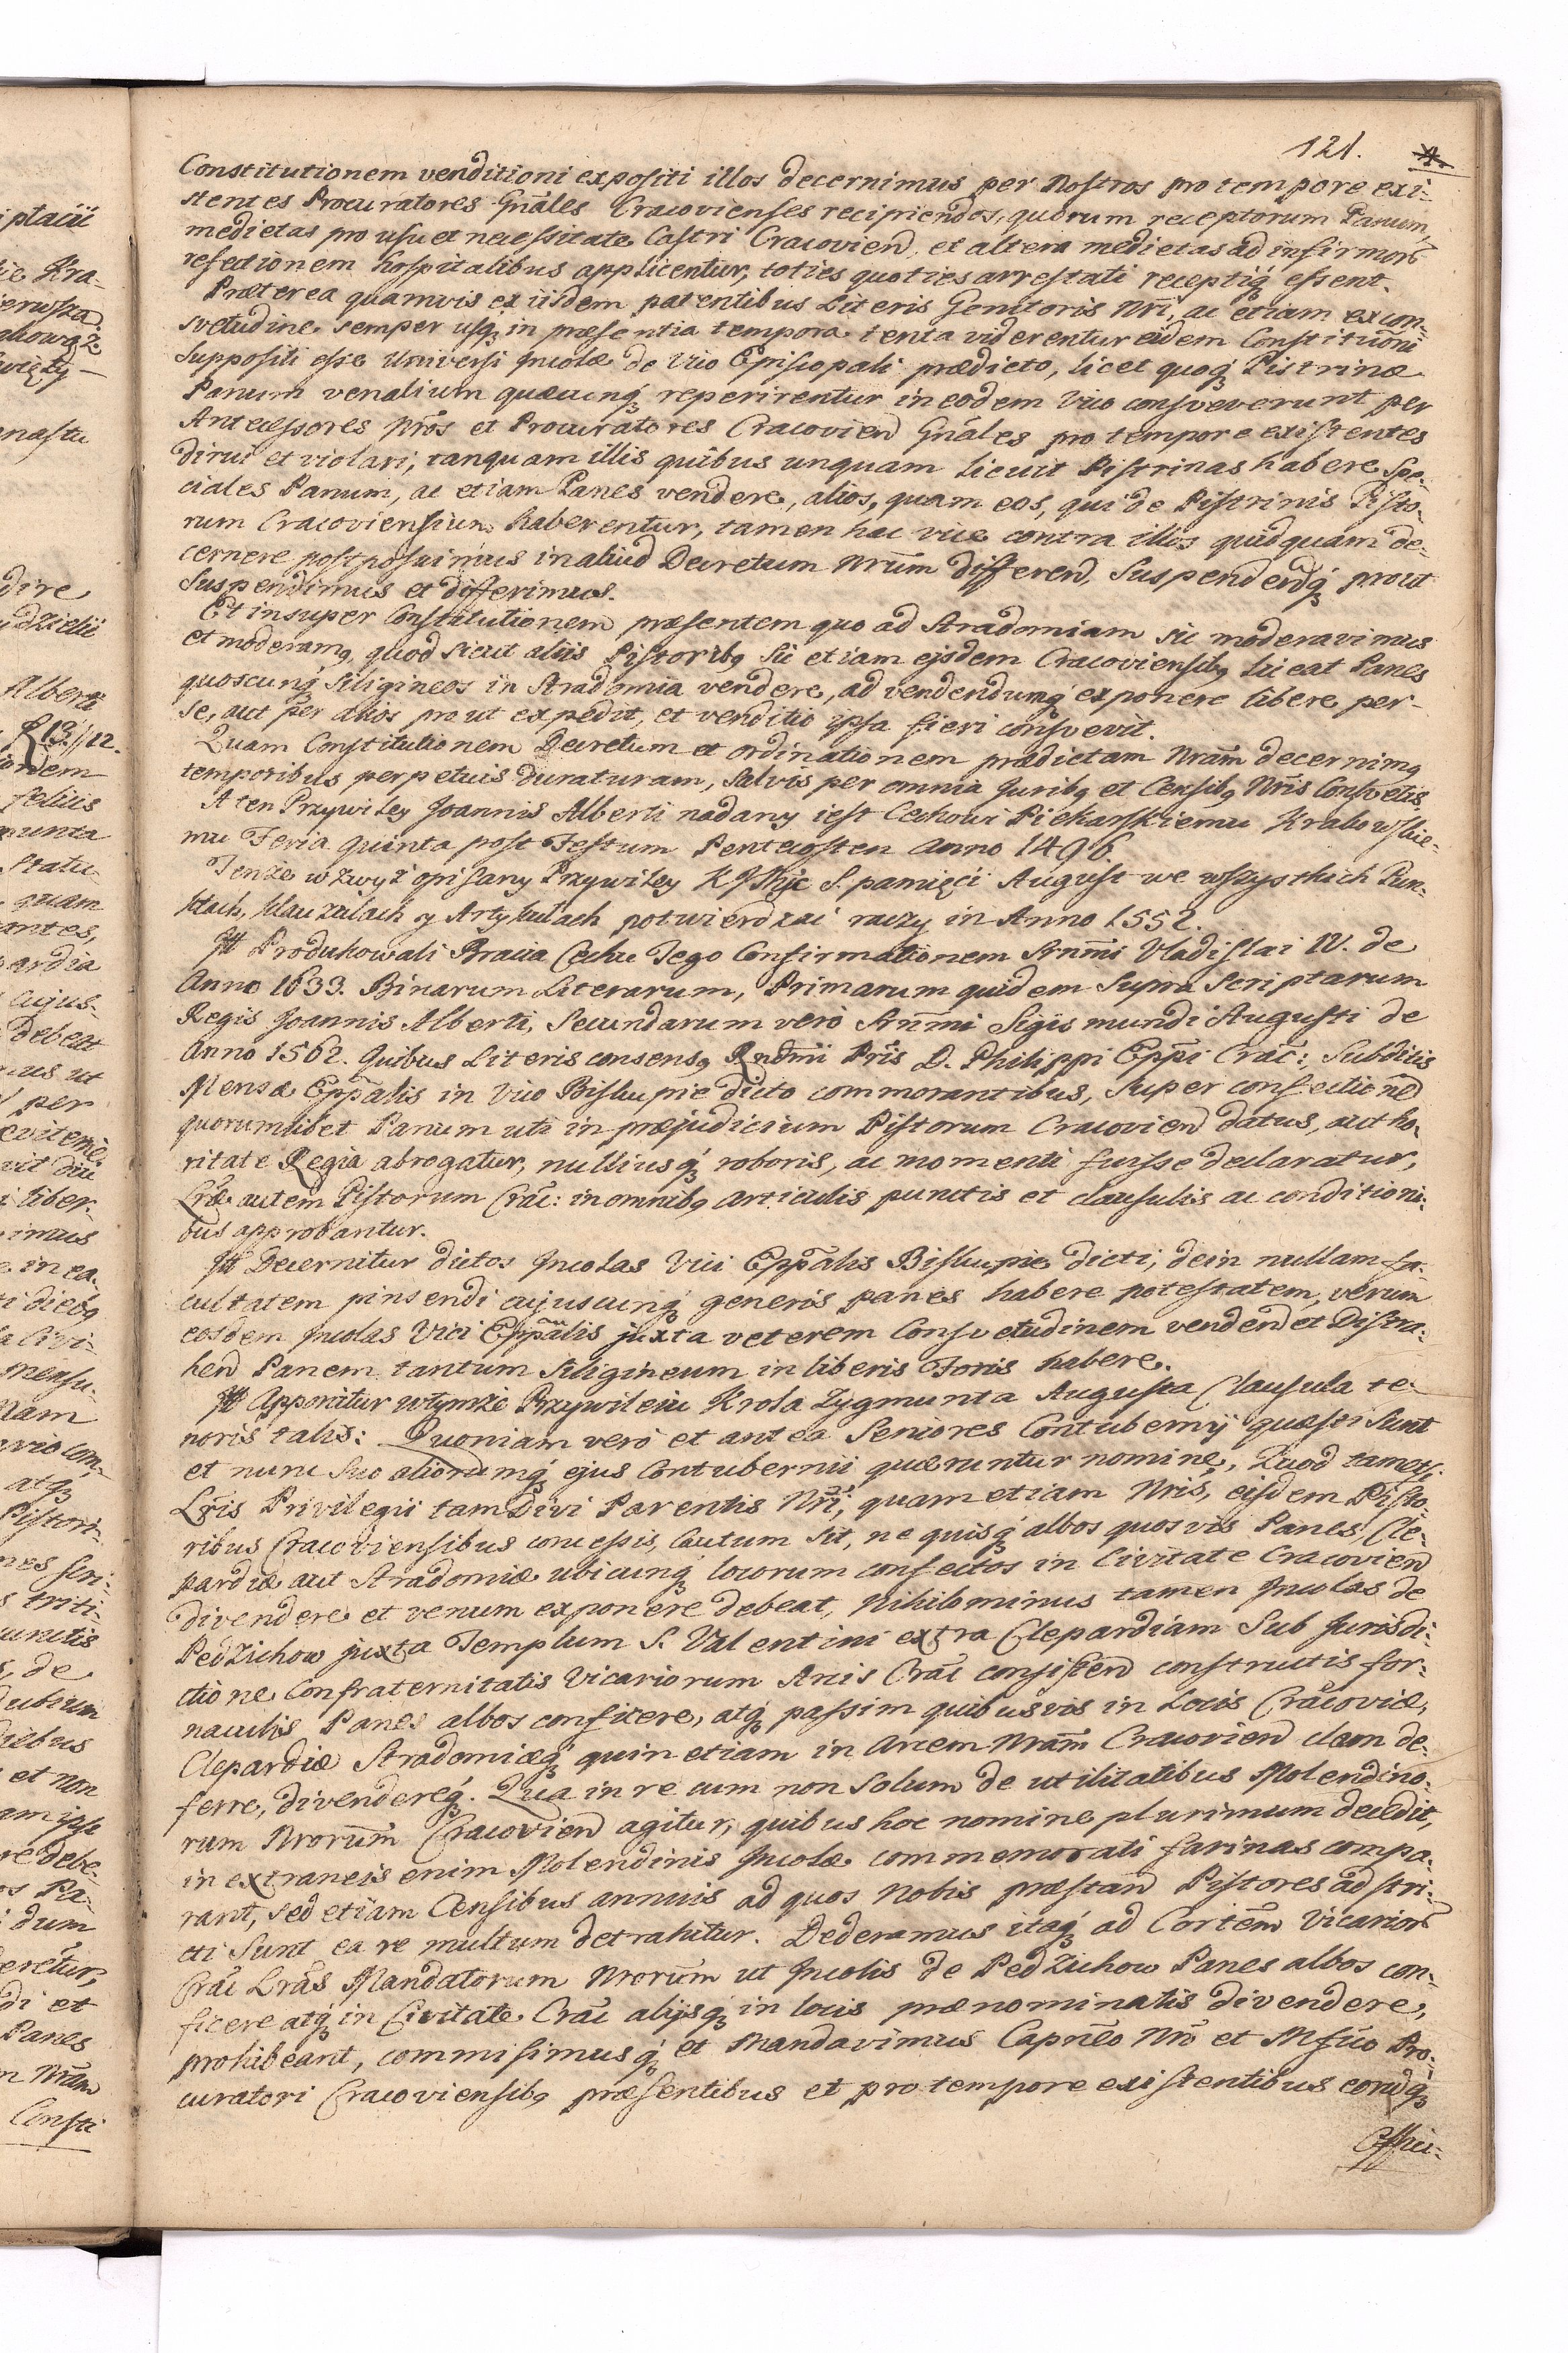 121.
Constitutionem venditioni expositi illos decernimus per Nostros pro tempore exi-
stentes Procuratores Gnales Cracovienses recipiendos, quorum receptorum Panum,
medietas pro usu et necessitate Castri Cracovien̄ et altera medietas ad infirmorū
refectionem hospitalibus applicentur, toties quoties arrestati receptiq́ʒ essent.
Præterea quamvis ex iisdem patentibus Literis Genitoris Nr̄i, ac etiam ex con-
svetudine semper usqʒ in præsentia tempora tenta viderentur eidem Constitutiōni
Suppositi esse Universi Incolæ de Vico Episcopali prædicto, licet quoqʒ Pistrinæ
Panum venalium quæcunqʒ reperirentur in eodem Vico consveverunt per
Antecessores Nr̄os et Procuratores Cracovien̄ Gnāles pro tempore existentes
dirui et violari, tanquam illis quibus unquam licuit Pistrinas habere Spe-
ciales Panum, ac etiam Panes vendere, alios, quam eos, qui de Pistrinis Pisto-
rum Cracoviensium haberentur, tamen hac vice contra illos quidquam de-
cernere postposuimus in aliud Decretum Nrūm differen̄, Suspenden̄qʒ prout
Suspendimus et differimus.
Et insuper Constitutionem præsentem quo ad Stradomiam sic moderavimus
et moderamꝯ, quod sicut aliis Pistoribꝯ sic etiam ejsdem Cracoviensibꝯ liceat Panes
quoscunqʒ siligineos in Stradomia vendere, ad vendendumqʒ exponere libere per
se, aut per alios prout expedit, et venditio ipsa fieri consvevit.
Quam Constitutionem Decretum et ordinationem prædictam Nrām decernimꝯ
temporibus perpetuis duraturam, salvis per omnia Juribꝯ et Censibꝯ Nrīs Consvetis.
A ten Przywiley Joannis Alberti nadany iest Cechowi Piekarskiemu Krakowskie-
mu Feria quinta post Festum Pentecosten Anno 1496.
Tenże wzwyż opisany Przywiley S. pamięci August we wszystkich Pun-
ktach, klauzulach y Artykułach potwierdzać raczy in Anno 1552.
It Produkowali Bracia Cechu Tego Confirmationem Srn̄mi Vladislai IV. de
Anno 1633. Binarum Literarum, Primarum quidem supra scriptarum
Regis Joannis Alberti, Secundarum vero Srn̄mi Sigismundi Augusti de
Anno 1562. Quibus Literis consensꝯ Rndmīi Prīs D. Philippi Epp̄i Crac̄: Subditis
Mensæ Epp̄alis in Vico Biskupie dicto commorantibus, super confectione
quorumlibet Panum uti in præjudicium Pistorum Cracovien̄ datus, autho-
ritate Regia abrogatur, nulliusqʒ roboris, ac momenti fuisse declaratur,
Lr̄æ autem Pistorum Crāc: in omnibꝯ articulis punctis et clausulis ac conditioni-
bus approbantur.
It Decernitur dictos Incolas Vici Epp̄alis Biskupie dicti, dein nullam fa-
cultatem pinsendi cujuscunqʒ generis panes habere potestatem, verum
eosdem Incolas Vici Epp̄alis juxta veterem Consvetudinem venden̄ et Distra-
hen̄ Panem tantum siligineum in liberis Foris habere.
It Apponitur w tymże Przywileiu Krola Zygmunta Augusta Clausula te-
noris talis: Quoniam vero et antea Seniores Contubernij quæsti sunt
et nunc suo aliorumqʒ ejus Contubernii quæruntur nomine, Quod tametsi
Lrīs Privilegii tam Divi Parentis Nr̄i, quam etiam Nris, eisdem Pisto-
ribus Cracoviensibus concessis, Cautum sit, ne quisqʒ albos quosvis Panes, Cle-
pardiæ aut Stradomiæ ubicunqʒ locorum confectos in Civitate Cracovien̄
divendere et venum exponere debeat, nihilominus tamen Incolas de
Pedzichow juxta Templum S. Valentini extra Clepardiam Sub Jurisdi-
ctione Confraternitatis Vicariorum Arcis Crāc consisten̄ constructis for-
naculis Panes albos conficere, atqʒ passim quibusvis in Locis Cracoviæ,
Clepardiæ Stradomiæqʒ quin etiam in Arcem Nrām Cracovien̄ clam de-
ferre, divendereqʒ. Qua in re cum non solum de utilitatibus Molendino-
rum Nrorūm Cracovien̄ agitur, quibus hoc nomine plurimum decedit,
in extraneis enim Molendinis Incolæ commemorati farinas compa-
rant, sed etiam Censibus annuis ad quos nobis præstan̄ Pistores adstri-
cti sunt ea re multum detrahitur. Dederamus itaqʒ ad Cortēm Vicariorū
Crāc Lrās Mandatorum Nrorūm ut Incolis de Pedzichow Panes albos con-
ficere atqʒ in Civitate Crāc alijsqʒ in locis prænominatis divendere,
prohibeant, commisimusqʒ et Mandavimus Capnēo Nrō et Mfico Pro-
curatori Cracoviensibꝯ præsentibus et pro tempore existentibus eorūqʒ
Offici-